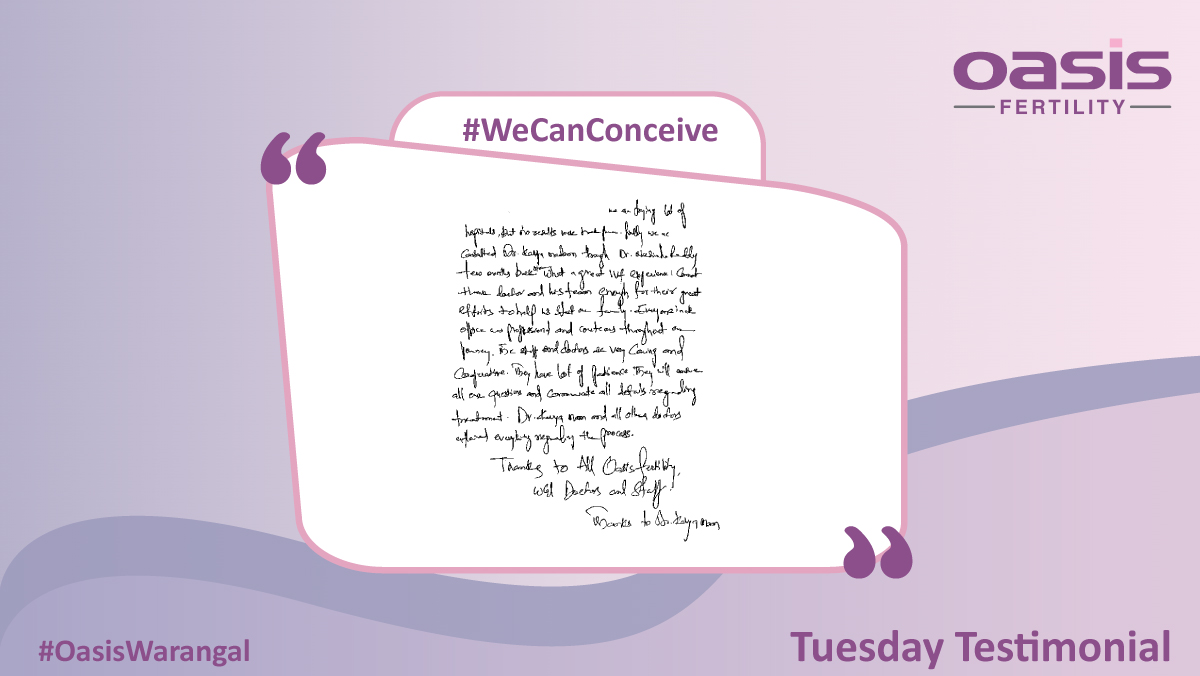 oasis
FERTILITY
#WeCanConceive
we are trying lot of
hospitals, but no results were
consulted Dr. Kavya madam through Dr. Reddy
few months back What a great IVF experience! Cannot
thank doctor and his team enough for their great
efforts to help us start our family. Everyone in the
office was professional and courteous throughout our
journey. The staff and doctors are very Caring and
They have lot of patience They will
all our questions and all details regarding
treatment. Dr. Kavya mam and all other doctors
explained everything regarding the process.
Thanks to All Oasis fertility,
Doctors and Staff.
Thanks to Dr. Kavya mam
#OasisWarangal
Tuesday Testimonial